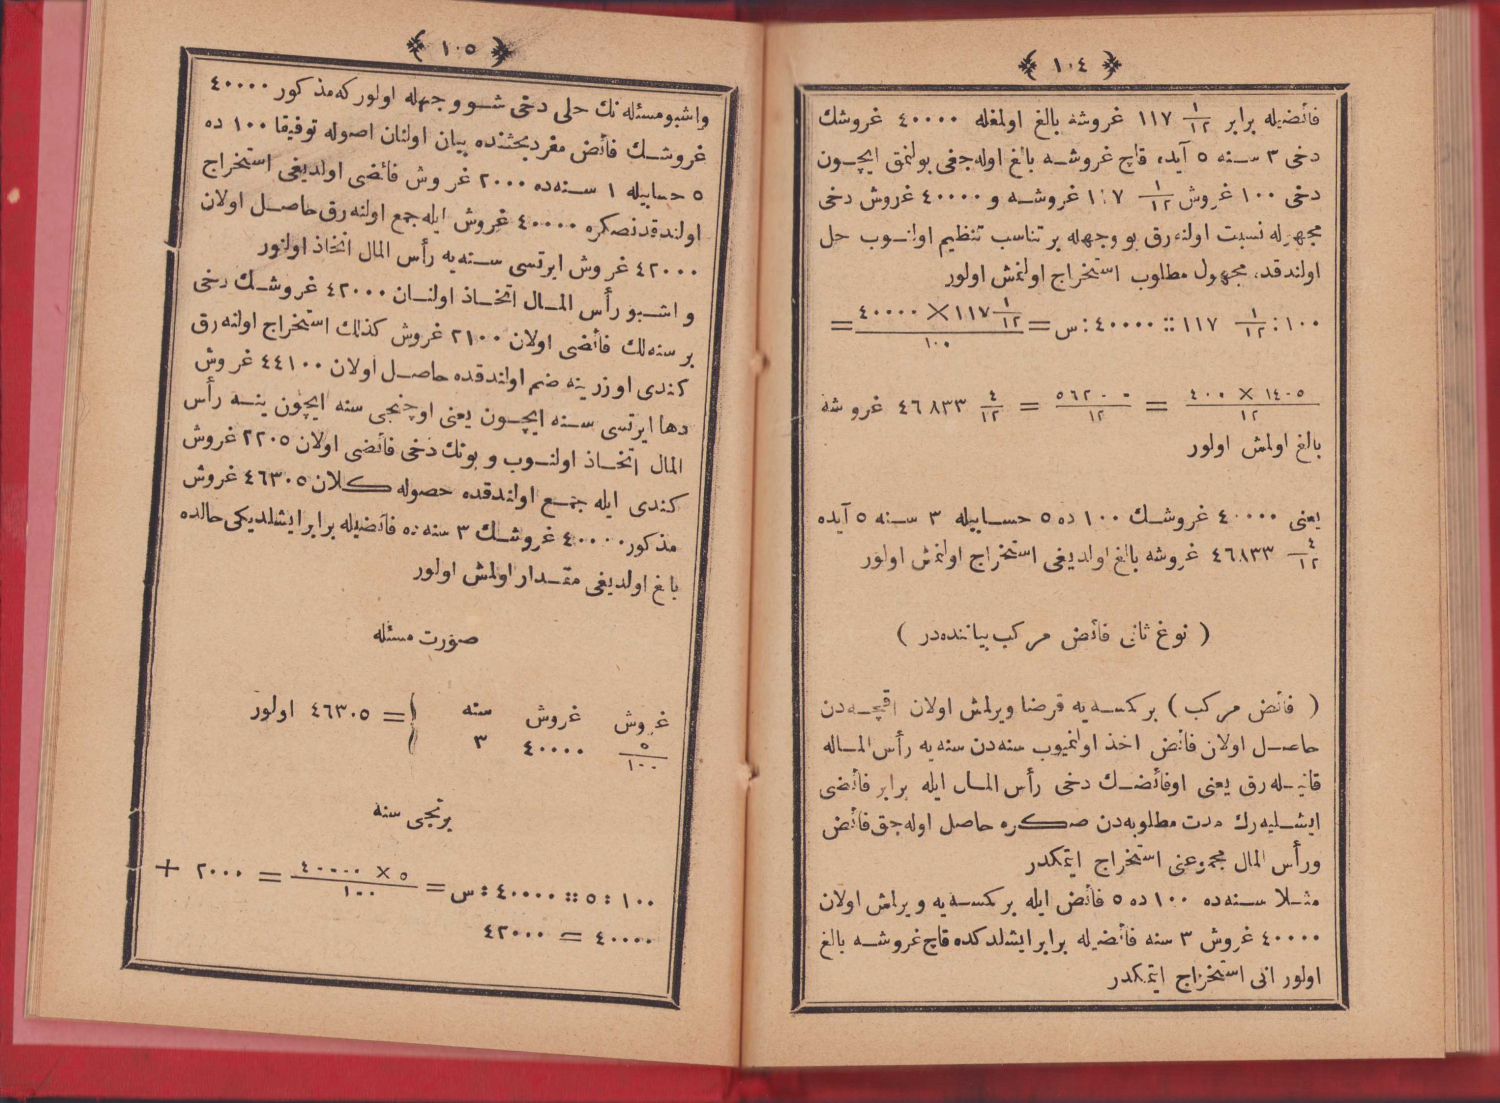 ﴿ ١٠٤ ﴾
فائضيله برابر ١/١٢ ١١٧ غروشه بالغ اولمغله ٤٠٠٠٠ غروشك
دخى ٣ سنه ٥ آيده قاچ غروشه بالغ اوله جغى بولنمق ايچون
دخى ١٠٠ غروش ١/١٢ ١١٧ غروشه و ٤٠٠٠٠ غروش دخى
مجهوله نسبت اولنه رق بو وجهله بر تناسب تنظيم اولنوب حل
اولندقده مجهول مطلوب استخراج اولنمش اولور
١٠٠ : ١/١٢ ١١٧ :: ٤٠٠٠٠ : س = ٤٠٠٠٠ × ١١٧ ١/١٢ / ١٠٠ =
١٤٠٥ × ٤٠٠ / ١٢ = ٥٦٢٠٠٠ / ١٢ = ٤/١٢ ٤٦٨٣٣ غروشه
بالغ اولمش اولور
يعنى ٤٠٠٠٠ غروشك ١٠٠ ده ٥ حسابيله ٣ سنه ٥ آيده
٤/١٢ ٤٦٨٣٣ غروشه بالغ اولديغى استخراج اولنمش اولور
( نوع ثانى فائض مركب بياننده در )
( فائض مركب ) بر كمسه يه قرضا ويرلمش اولان اقچه دن
حاصل اولان فائض اخذ اولنميوب سنه دن سنه يه رأس الماله
قاتيله رق يعنى او فائضك دخى رأس المال ايله برابر فائضى
ايشليه رك مدت مطلوبه دن صكره حاصل اوله جق فائض
ورأس المال مجموعنى استخراج ايتمكدر
مثلا سنه ده ١٠٠ ده ٥ فائض ايله بر كمسه يه ويرلمش اولان
٤٠٠٠٠ غروش ٣ سنه فائضيله برابر ايشلدكده قاچ غروشه بالغ
اولور انى استخراج ايتمكدر
﴿ ١٠٥ ﴾
واشبو مسئله نك حلى دخى شو وجهله اولور كه مذكور ٤٠٠٠٠
غروشك فائض مفرد بحثنده بيان اولنان اصوله توفيقا ١٠٠ ده
٥ حسابيله ١ سنه ده ٢٠٠٠ غروش فائضى اولديغى استخراج
اولندقدنصكره ٤٠٠٠٠ غروش ايله جمع اولنه رق حاصل اولان
٤٢٠٠٠ غروش ايرتسى سنه يه رأس المال اتخاذ اولنور
و اشبو رأس المال اتخاذ اولنان ٤٢٠٠٠ غروشك دخى
بر سنه لك فائضى اولان ٢١٠٠ غروش كذلك استخراج اولنه رق
كندى اوزرينه ضم اولندقده حاصل اولان ٤٤١٠٠ غروش
دها ايرتسى سنه ايچون يعنى اوچنجى سنه ايچون ينه رأس
المال اتخاذ اولنوب و بونك دخى فائضى اولان ٢٢٠٥ غروش
كندى ايله جمع اولندقده حصوله كلان ٤٦٣٠٥ غروش
مذكور ٤٠٠٠٠ غروشك ٣ سنه ده فائضيله برابر ايشلديكى حالده
بالغ اولديغى مقدار اولمش اولور
صورت مسئله
غروش غروش سنه
٥/١٠٠ ٤٠٠٠٠ ٣ } = ٤٦٣٠٥ اولور
برنجى سنه
١٠٠ : ٥ :: ٤٠٠٠٠ : س = ٥ × ٤٠٠٠٠ / ١٠٠ = ٢٠٠٠ +
٤٠٠٠٠ = ٤٢٠٠٠